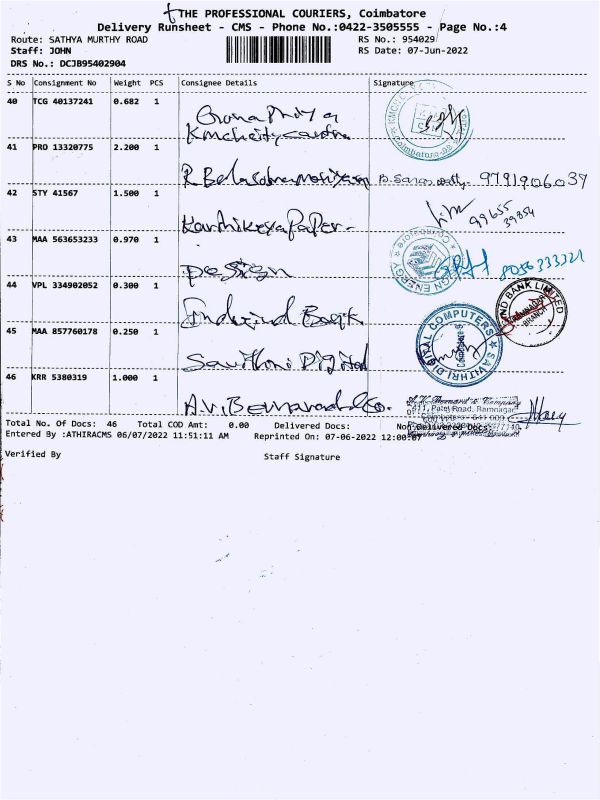 THE PROFESSIONAL COURIERS, Coimbatore
Delivery Runsheet - CMS - Phone No.:0422-3505555 - Page No.:4
Route: SATHYA MURTHY ROAD RS No.: 954029
Staff: JOHN RS Date: 07-Jun-2022
DRS No.: DCJB95402904
S No Consignment No Weight PCS Consignee Details Signature
40 TCG 40137241 0.682 1
41 PRO 13320775 2.200 1
9791906039
42 STY 41567 1.500 1
Karthikeya Paper-
99655
39854
43 MAA 563653233 0.970 1
Design
8056333321
44 VPL 334902052 0.300 1
Indusind Bank
45 MAA 857760178 0.250 1
SAVITHRI DIGITAL COMPUTERS
46 KRR 5380319 1.000 1
A.V. Bernard & Co.
411, Patel Road, Ramnagar
Total No. Of Docs: 46 Total COD Amt: 0.00 Delivered Docs: Non Delivered Docs:
Entered By :ATHIRACMS 06/07/2022 11:51:11 AM Reprinted On: 07-06-2022 12:00:07
Verified By Staff Signature